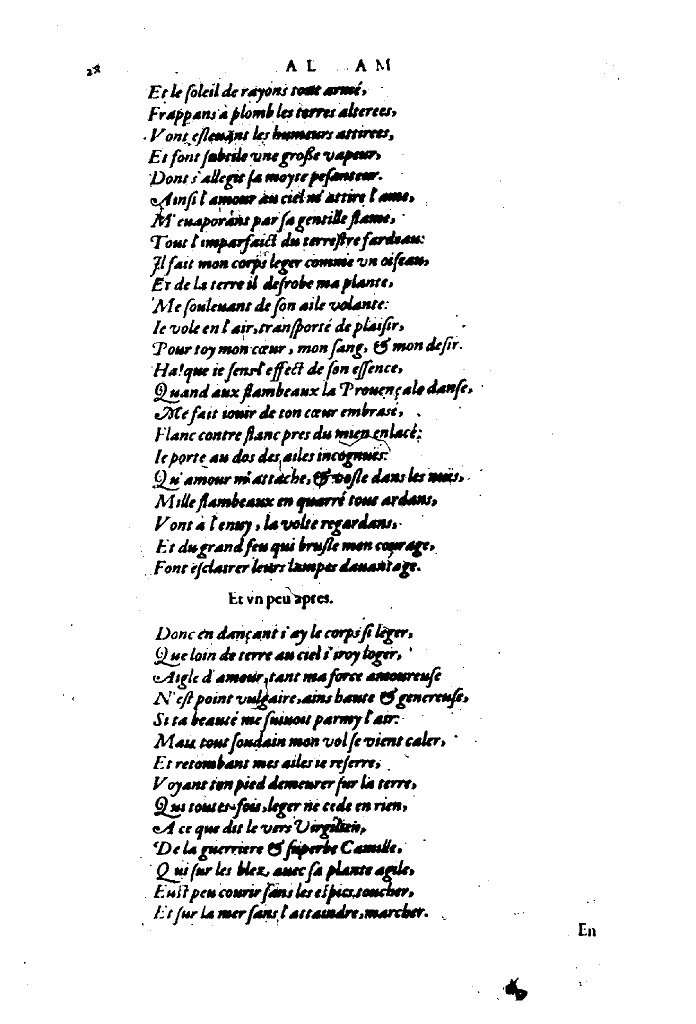 28
AL AM
Et le ſoleil de rayons tout armé,
Frappans à plomb les terres alterees,
Vont eſleuant les humeurs attirees,
Et font ſubtile vne groſſe vapeur,
Dont s'allegit ſa moyte peſanteur.
Ainſi l'amour au ciel m'attire l'ame,
M'euaporant par ſa gentille flame,
Tout l'imparfaict du terreſtre fardeau:
Il fait mon corps leger comme vn oiſeau,
Et de la terre il deſrobe ma plante,
Me ſouleuant de ſon aile volante:
Ie vole en l'air, tranſporté de plaiſir,
Pour toy mon cœur, mon ſang, & mon deſir.
Ha! que ie ſens l'effect de ſon eſſence,
Quand aux flambeaux la Prouençale danſe,
Me fait iouir de ton cœur embraſé,
Flanc contre flanc pres du mien enlacé:
Ie porte au dos des ailes incognues:
Qu'amour m'attache, & volle dans les nues,
Mille flambeaux en quarré tous ardans,
Vont à l'enuy, la volte regardans,
Et du grand feu qui bruſle mon courage,
Font eſclairer leurs lampes dauantage.
Et vn peu apres.
Donc en dançant i'ay le corps ſi leger,
Que loin de terre au ciel i'iroy loger,
Aigle d'amour, tant ma force amoureuſe
N'eſt point vulgaire, ains haute & genereuſe,
Si ta beauté me ſuiuoit parmy l'air:
Mais tout ſoudain mon vol ſe vient caler,
Et retombant mes ailes ie reſerre,
Voyant ton pied demeurer ſur la terre,
Qui toutes-fois, leger ne cede en rien,
A ce que dit le vers Virgilien,
De la guerriere & ſuperbe Camille,
Qui ſur les blez, auec ſa plante agile,
Euſt peu courir ſans les eſpics toucher,
Et ſur la mer ſans l'attaindre, marcher.
En